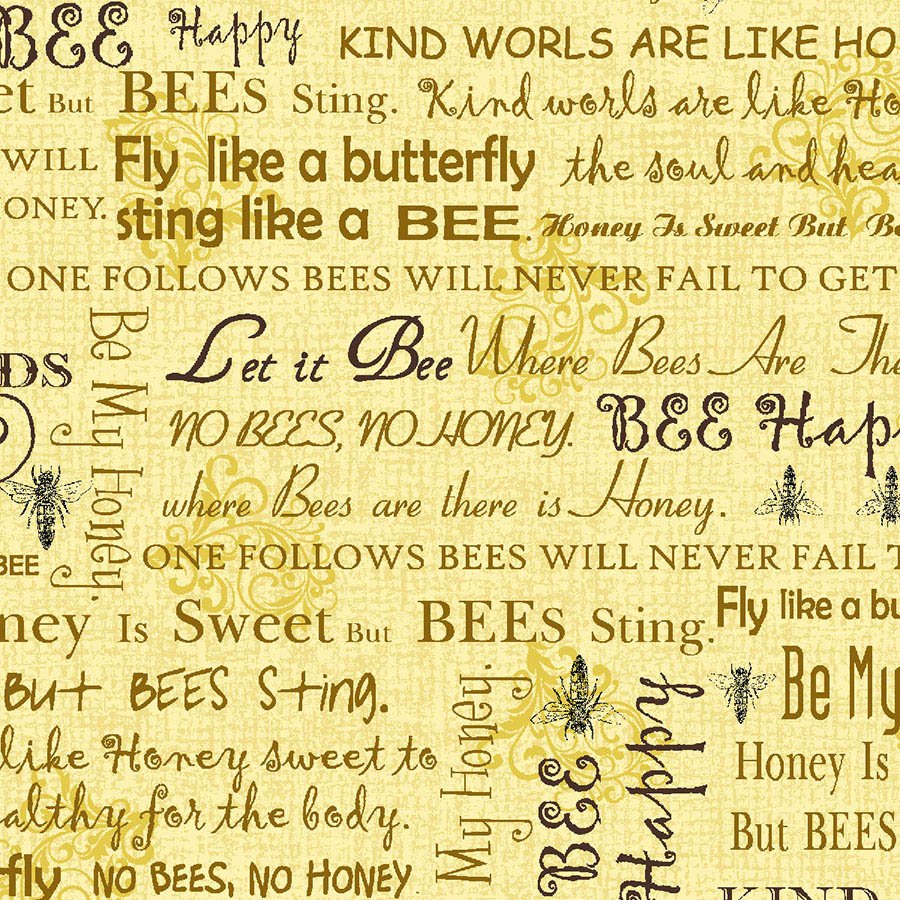 BEE Happy
KIND WORLS ARE LIKE HO
et But BEES Sting.
Kind worls are like Ho
WILL
Fly like a butterfly
the soul and hea
ONEY.
sting like a BEE.
Honey Is Sweet But Be
ONE FOLLOWS BEES WILL NEVER FAIL TO GET
Be My Honey.
Let it Bee
Where Bees Are The
DS
NO BEES, NO HONEY.
BEE Happ
where Bees are there is Honey.
BEE
ONE FOLLOWS BEES WILL NEVER FAIL T
ney Is Sweet But BEES Sting.
Fly like a bu
But BEES Sting.
My Honey.
BEE Happy
Be My
like Honey sweet to
Honey Is
althy for the body.
But BEES
fly
NO BEES, NO HONEY
KIND